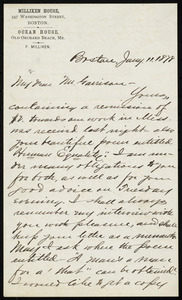 MILLIKEN HOUSE,
337 WASHINGTON STREET,
BOSTON.
OCEAN HOUSE,
OLD ORCHARD BEACH, ME.
F. MILLIKEN.
Boston Jany 11. 1878
My dear Mr. Garrison—
Yours,
containing a remission of
towards our work in Mass.
was received last night also
your beautiful poem entitled
Human Equality. I am un-
der renewed obligations to you
for both, as well as for your
good advice on Tuesday
evening. I shall always
remember my interview with
you with pleasure, and shall
keep your letter as a memento.
May I ask where the poem
entitled A man's a man
for a' that" can be obtained.
I wanted to get a copy